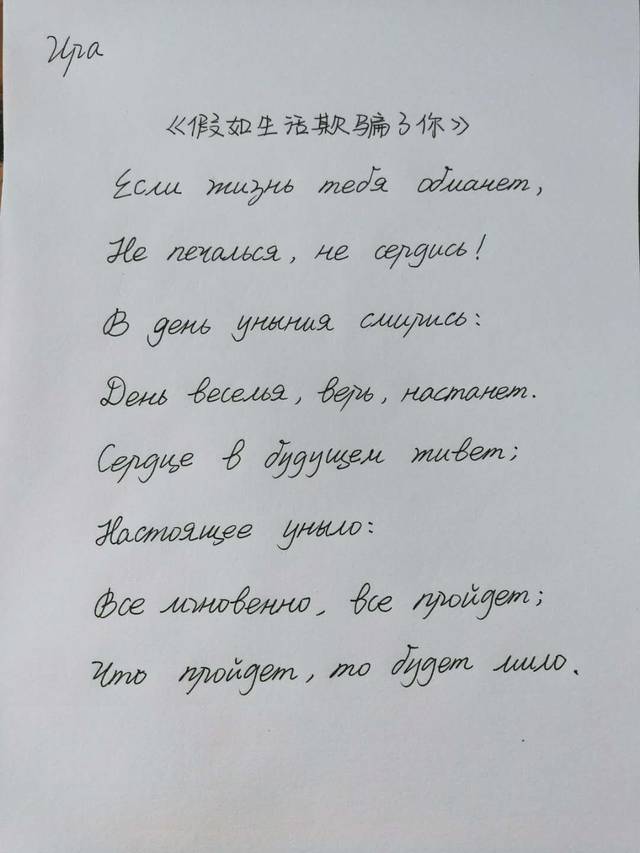 Ира
《假如生活欺骗了你》
Если жизнь тебя обманет,
Не печалься, не сердись!
В день уныния смирись:
День веселья, верь, настанет.
Сердце в будущем живет;
Настоящее уныло:
Все мгновенно, все пройдет;
Что пройдет, то будет мило.